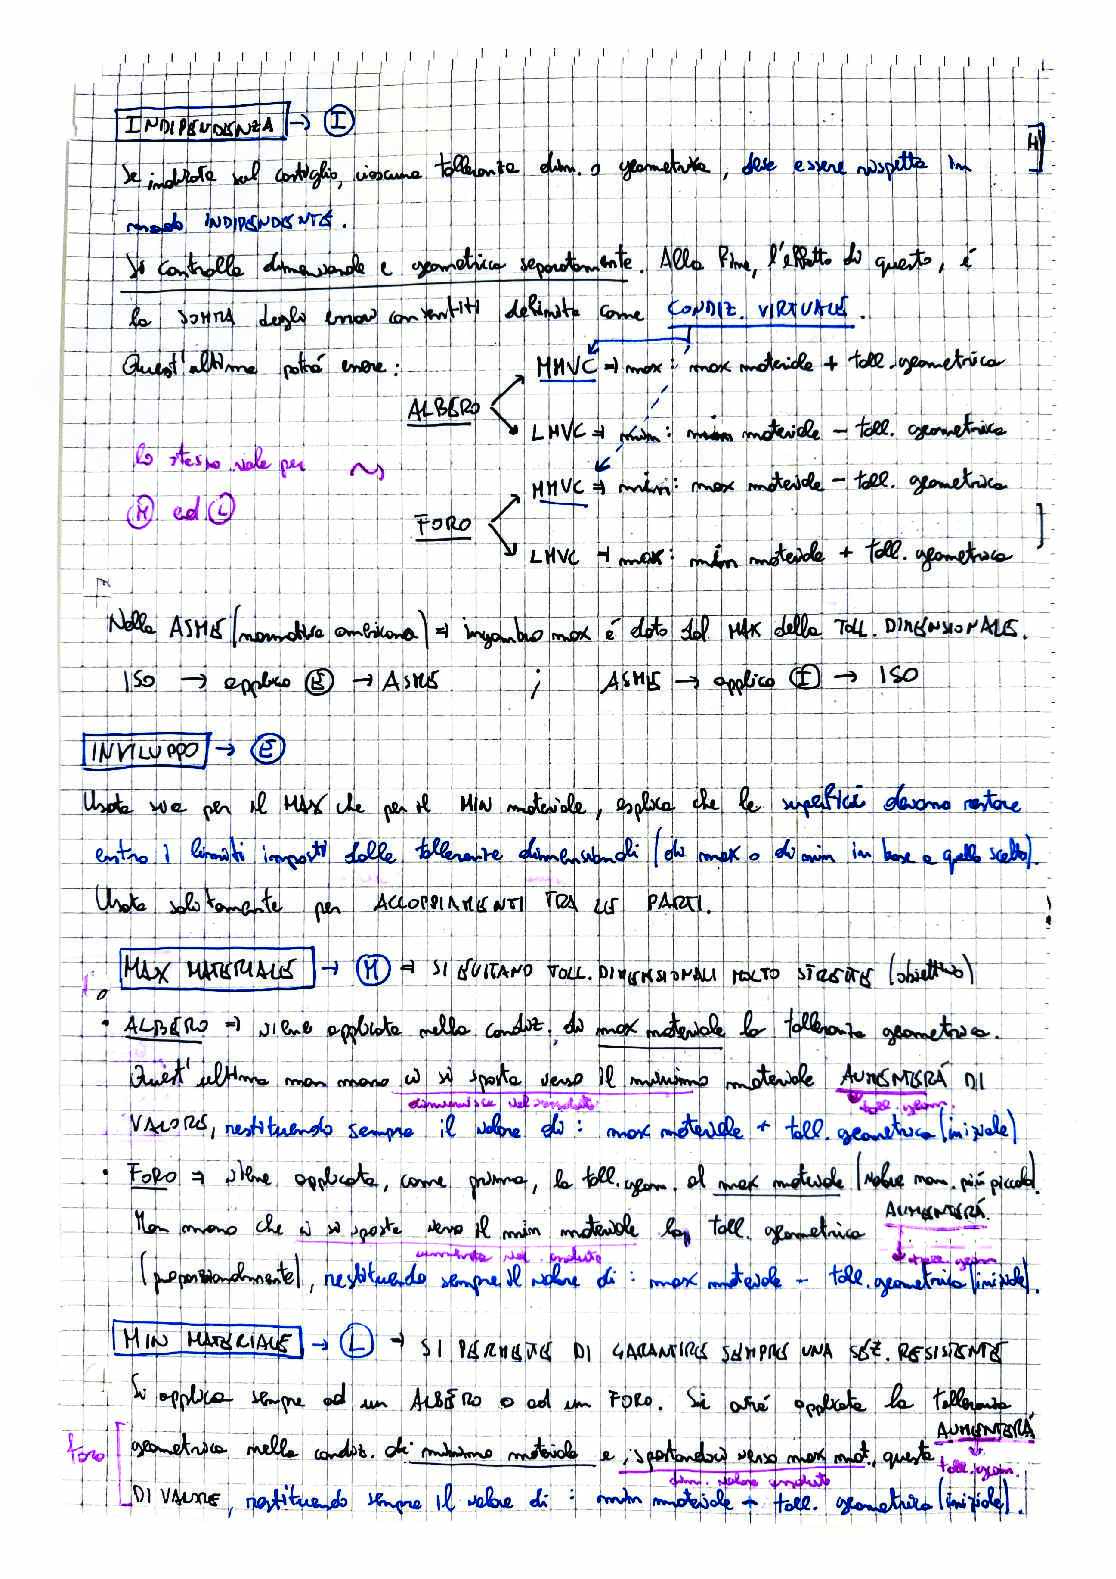 INDIPENDENZA → Ⓘ
Se indicata sul cartiglio, ciascuna tolleranza dim. o geometrica, deve essere rispetta in
modo INDIPENDENTE.
Si controlla dimensionale e geometrica separatamente. Alla fine, l'effetto di questo, é
la SOMMA degli errori consentiti definita come CONDIZ. VIRTUALE.
Quest'ultima potrá essere:
ALBERO
MMVC ⇒ max: max materiale + toll. geometrica
LMVC ⇒ min: min materiale - toll. geometrica
lo stesso vale per
Ⓜ ed Ⓛ
FORO
MMVC ⇒ min: max materiale - toll. geometrica
LMVC ⇒ max: min materiale + toll. geometrica
Nella ASME (normativa americana) ⇒ ingombro max é dato dal MAX della TOLL. DIMENSIONALE.
ISO → applico Ⓔ → ASME ; ASME → applico Ⓘ → ISO
INVILUPPO → Ⓔ
Usata sia per il MAX che per il MIN materiale, esplica che le superfici devono restare
entro i limiti imposti dalle tolleranze dimensionali (di max o di min in base a quello scelto).
Usata solitamente per ACCOPPIAMENTI TRA LE PARTI.
MAX MATERIALE → Ⓜ ⇒ SI EVITANO TOLL. DIMENSIONALI MOLTO STRETTE (obiettivo)
• ALBERO ⇒ viene applicata nella condiz. di max materiale la tolleranza geometrica.
Quest'ultima man mano ci si sposta verso il minimo materiale AUMENTERÁ DI
diminuisce val. toll. geom.
VALORE, restituendo sempre il valore di: max materiale + toll. geometrica (iniziale)
• FORO ⇒ viene applicata, come prima, la toll. geom. al max materiale (valore nom. più piccolo).
Man mano che ci si sposta verso il min materiale la toll. geometrica AUMENTERÁ
aumenta val.
(proporzionalmente), restituendo sempre il valore di: max materiale - toll. geometrica (iniziale).
MIN MATERIALE → Ⓛ → SI PERMETTE DI GARANTIRE SEMPRE UNA SEZ. RESISTENTE
Si applica sempre ad un ALBERO o ad un FORO. Si avrá applicata la tolleranza
foro geometrica nella condiz. di minimo materiale e, spostandoci verso max mat., questa AUMENTERÁ
dim. valore toll. geom.
DI VALORE, restituendo sempre il valore di: min materiale + toll. geometrica (iniziale).